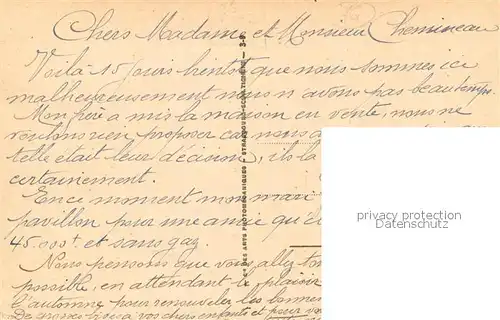 Chers Madame et Monsieur Chemineau
Voilà 15 jours bientôt que nous sommes ici
malheureusement nous n'avons pas beau temps.
Mon père a mis la maison en vente, nous ne
voulons rien proposer car nous a
telle était leur décision, ils la
certainement.
En ce moment mon mari
pavillon pour une amie qu'
45.000f et sans gaz.
Nous pensons que vous allez to
possible, en attendant le plaisir
l'automne pour renouveler les bonnes
De gros bisous à vos chers enfants et pour vo
Cie DES ARTS PHOTOMÉCANIQUES - STRASBOURG-SCHILTIGHEIM - 3-9
privacy protection
Datenschutz